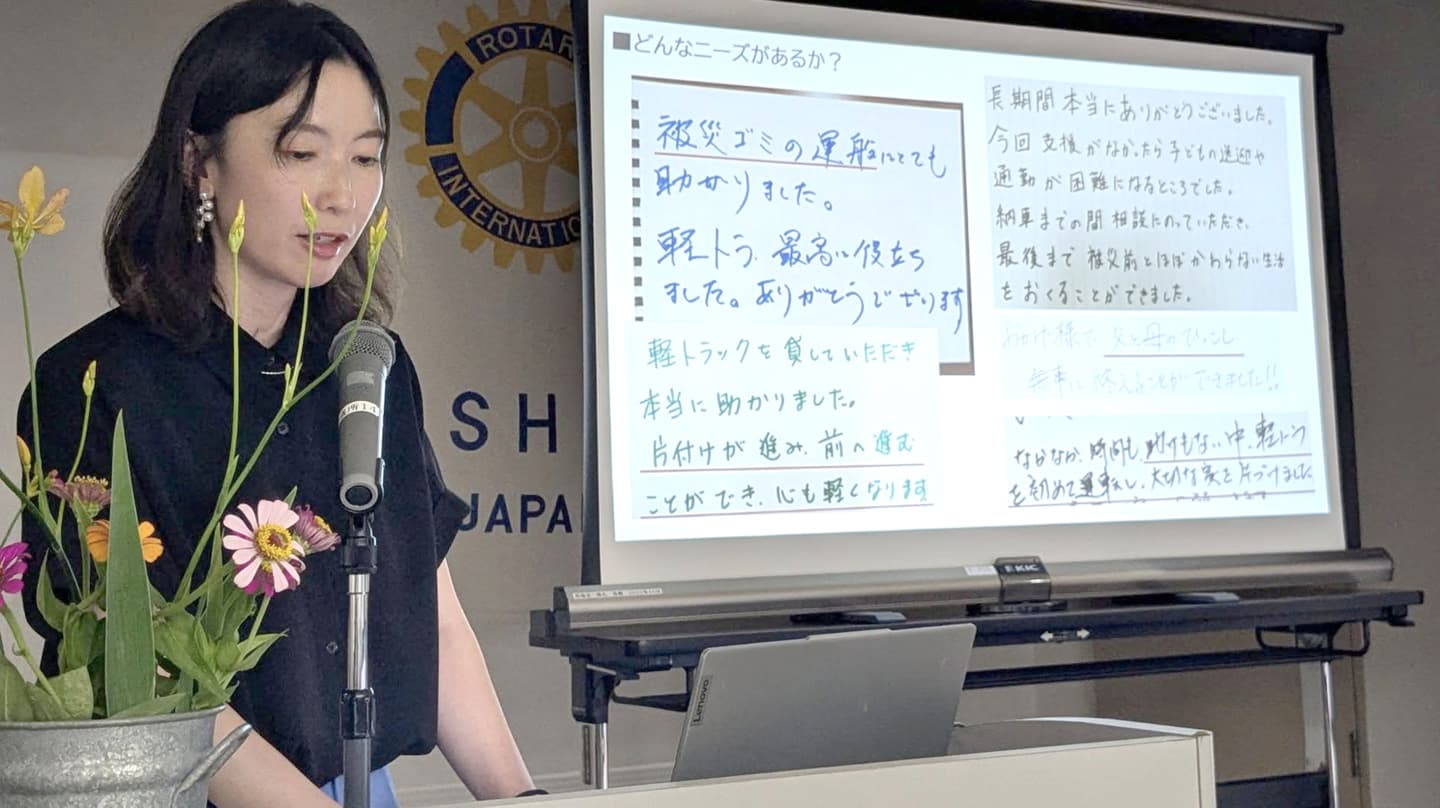 ROTAR
INTERNATIO
SH
JAPA
■どんなニーズがあるか？
被災ゴミの運般にとても
助かりました。
軽トラ、最高に役立ち
ました。ありがとうございます
軽トラックを貸していただき
本当に助かりました。
片付けが進み、前へ進む
ことができ、心も軽くなります
長期間本当にありがとうございました。
今回支援がなかったら子どもの送迎や
通勤が困難になるところでした。
納車までの間相談にのっていただき、
最後まで被災前とほぼかわらない生活
をおくることができました。
おかげ様で 父と母のひっこし
無事に終えることができました!!
なかなか、時間も、助けもない中、軽トラ
を初めて運転し、大切な家を片づけました
KIC
Lenovo